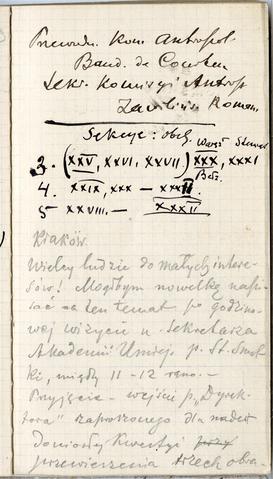 Przewodn. Kom Antropol.
Baud. de Courten
Sekr. Komisyi Antrop
Roman.
Sekcye: obch.
3. (XXV, XXVI, XXVII) XXX, XXXI
4. XXIX, XXX — XXXII.
5 XXVIII. — XXXII
Kraków.
Wielcy ludzie do małych intere-
sów! Mógłbym nowelkę napi-
sać na ten temat po godzino-
wej wizycie u Sekretarza
Akademii Umiej. p. St. Smol-
ki, między 11 - 12 rano. —
Przyjęcie - wejście p. "Dyrek-
tora" zaproszonego dla nader
doniosłej kwestyi
przewiezienia trzech obra-